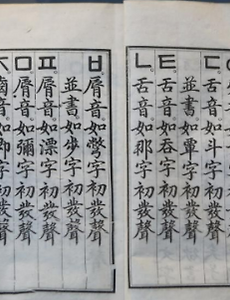 ㄷ。舌音。如斗字初發聲
並書。如覃字初發聲
ㅌ。舌音。如呑字初發聲
ㄴ。舌音。如那字初發聲
ㅂ。脣音。如彆字初發聲
並書。如步字初發聲
ㅍ。脣音。如漂字初發聲
ㅁ。脣音。如彌字初發聲
ㅈ。齒音。如即字初發聲